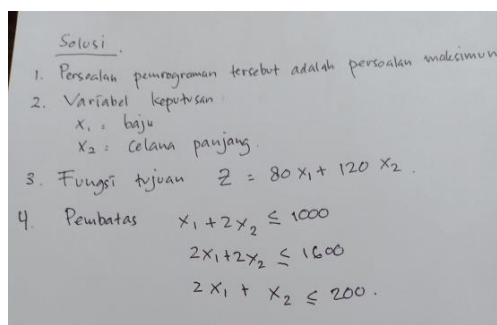 Solusi.
1. Persoalan pemrograman tersebut adalah persoalan maksimum
2. Variabel keputusan
x₁ = baju
x₂ = celana panjang.
3. Fungsi tujuan Z = 80 x₁ + 120 x₂.
4. Pembatas x₁ + 2x₂ ≤ 1000
2x₁ + 2x₂ ≤ 1600
2x₁ + x₂ ≤ 200.